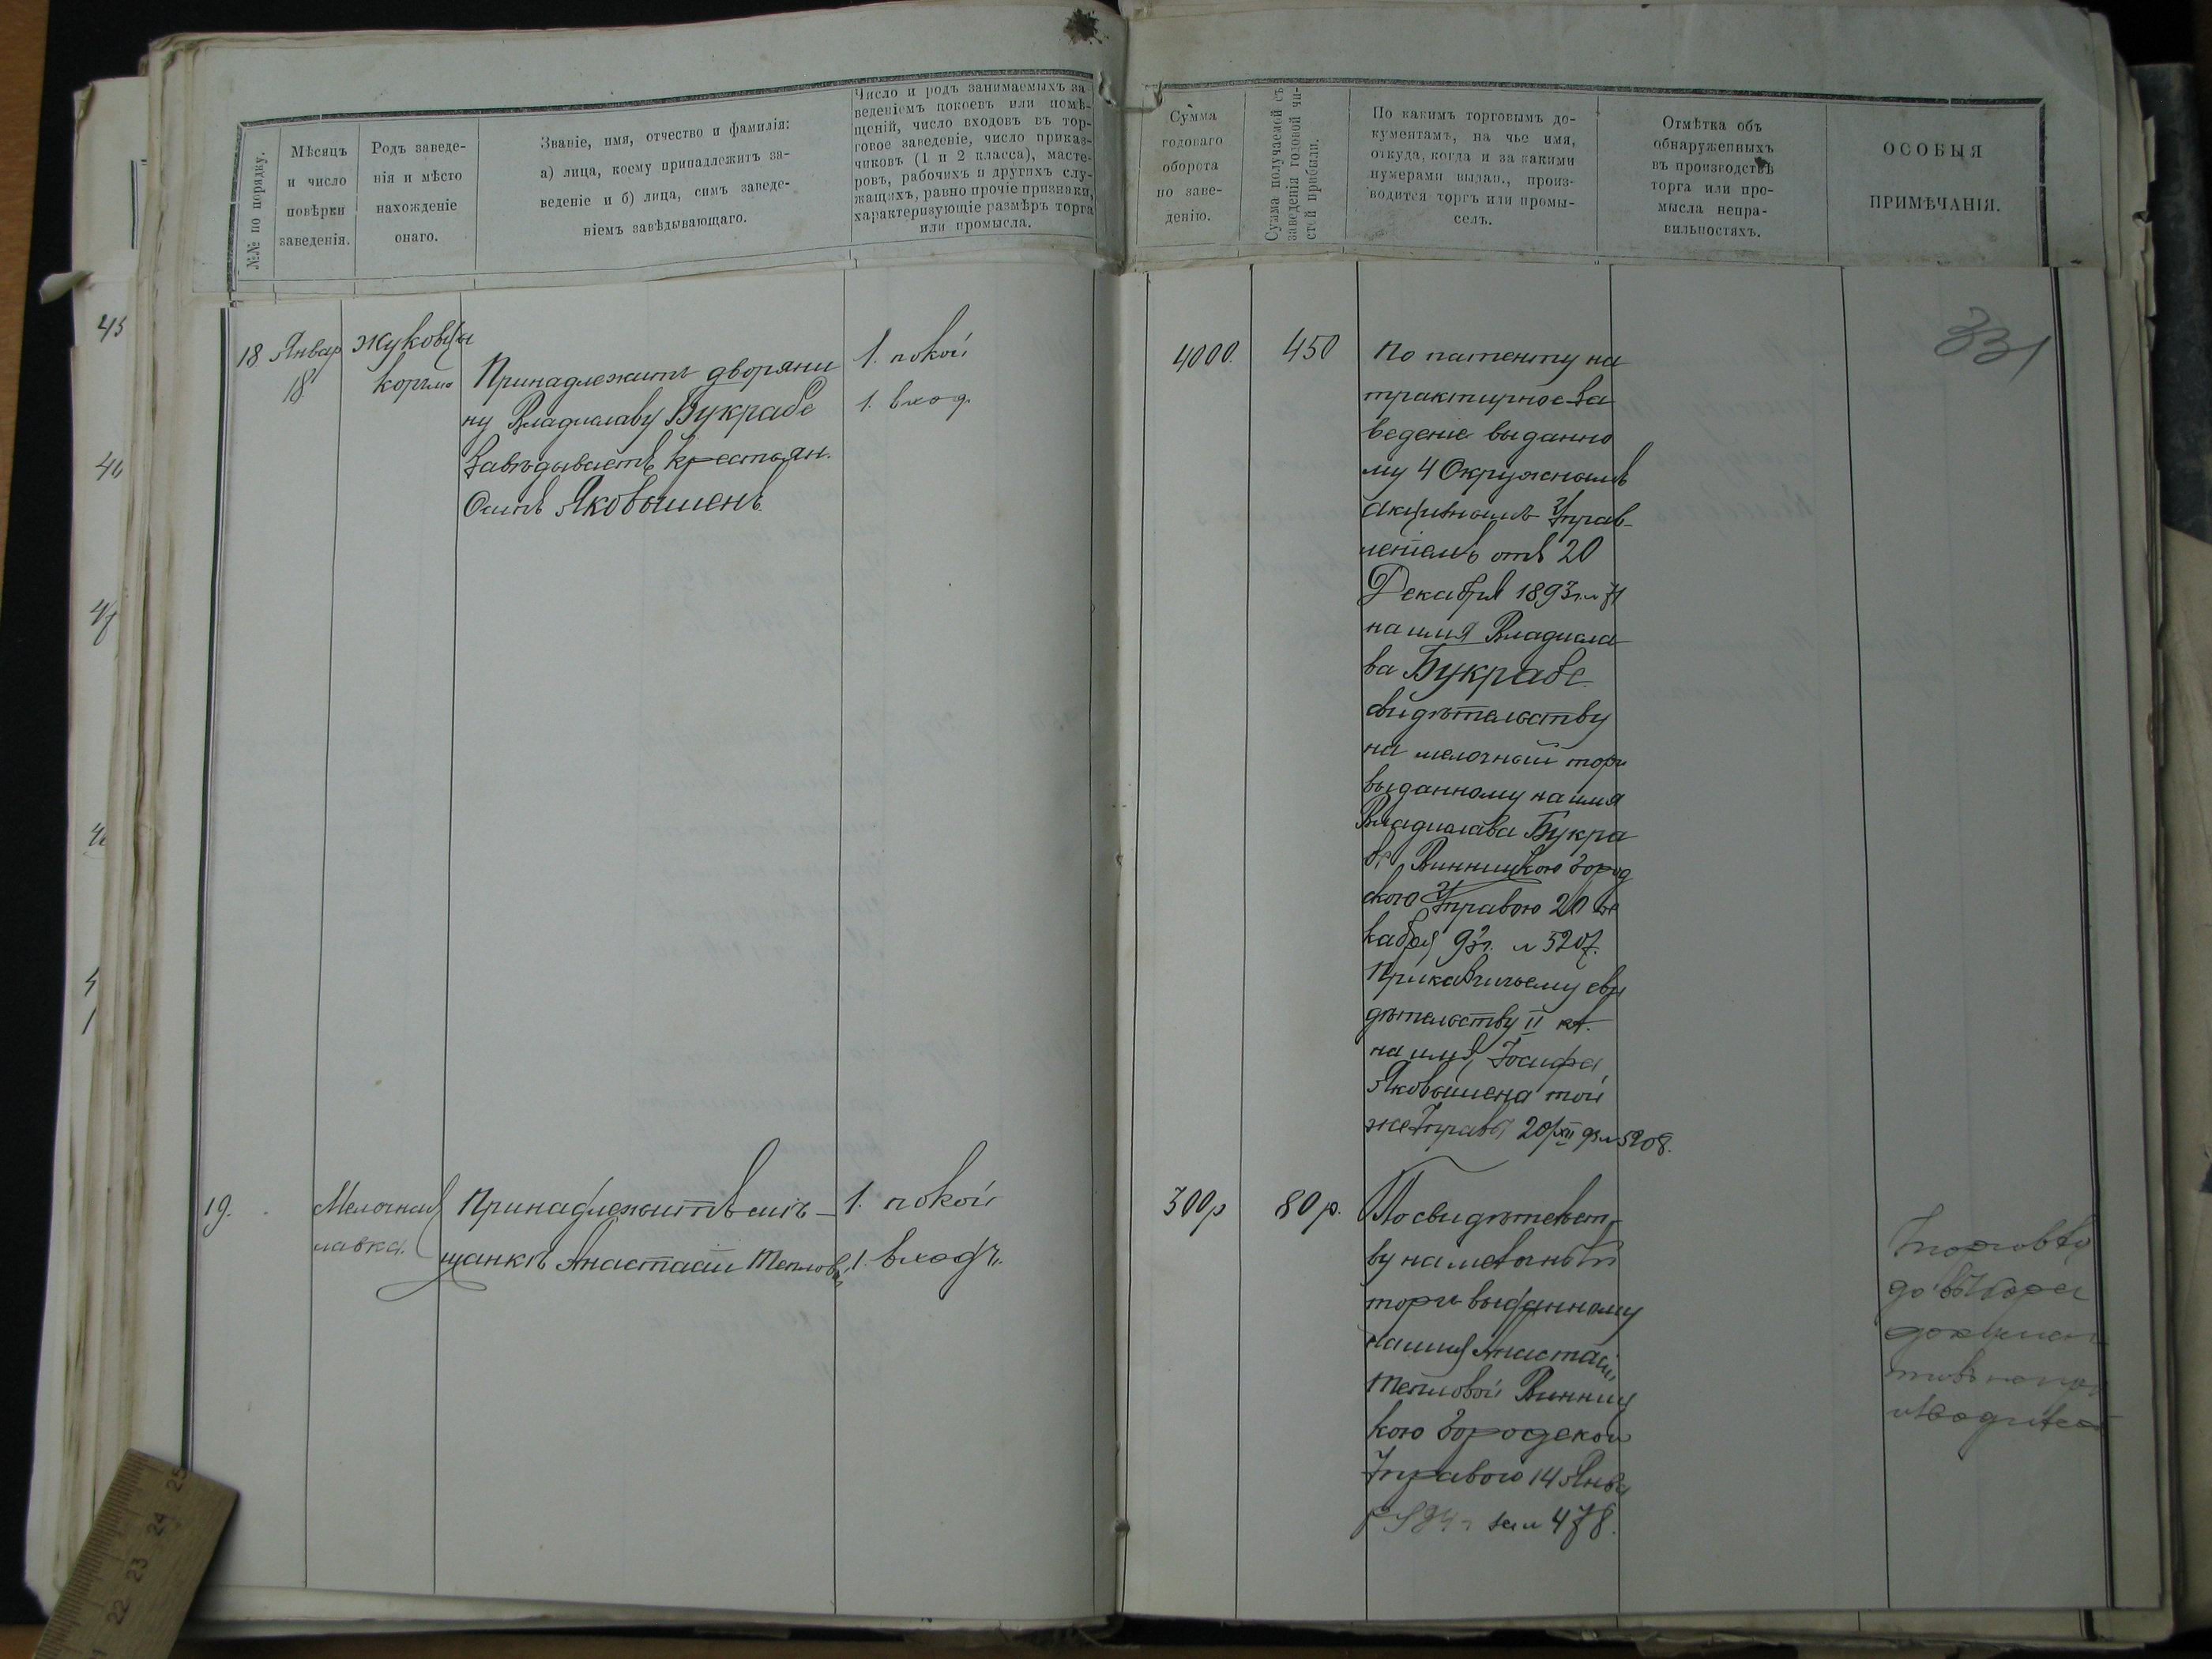 №№ по порядку.
Мѣсяцъ
и число
повѣрки
заведенія.
Родъ заведе-
нія и мѣсто
нахожденіе
онаго.
Званіе, имя, отчество и фамилія:
а) лица, коему принадлежитъ за-
веденіе и б) лица, симъ заведе-
ніемъ завѣдывающаго.
Число и родъ занимаемыхъ за-
веденіемъ покоевъ или помѣ-
щеній, число входовъ въ тор-
говое заведеніе, число приказ-
чиковъ (1 и 2 класса), масте-
ровъ, рабочихъ и другихъ слу-
жащихъ, равно прочіе признаки,
характеризующіе размѣръ торга
или промысла.
Сумма
годоваго
оборота
по заве-
денію.
Сумма получаемой съ
заведенія годовой чи-
стой прибыли.
По какимъ торговымъ до-
кументамъ, на чье имя,
откуда, когда и за какими
нумерами выдан., произ-
водится торгъ или промы-
селъ.
Отмѣтка объ
обнаруженныхъ
въ производствѣ
торга или про-
мысла непра-
вильностяхъ.
ОСОБЫЯ
ПРИМѢЧАНІЯ.
331
18
Январ
18
Жуковцы
корчма
Принадлежитъ дворяни
ну Владиславу Букрабе
Завѣдываетъ крестьян.
Осипъ Яковышенъ
1. покой
1. вход
4000.
450
По патенту на
трактирное за
веденіе выданно
му 4 Окружнымъ
Акцизнымъ Управ-
леніемъ отъ 20
Декабря 1893 г. № 71
на имя Владисла
ва Букрабе
свидѣтельству
на мелочный торг
выданному на имя
Владислава Букра
бе Винницкою Город
скою Управою 20 де
кабря 93 г. № 5207.
Приказчичьему сви
дѣтельству II кл.
на имя Іосифа
Яковышена той
же Управы 20/XII 93 № 5208.
19.
Мелочная
лавка.
Принадлежитъ мѣ-
щанкѣ Анастасіи Тепловой
1. покой
1. входъ.
300 р
80 р.
По свидѣтельст-
ву на мелочный
торгъ выданному
на имя Анастасіи
Тепловой Винниц
кою Городской
Управою 14 Янва
р 94 г за № 478.
Торговля
до выбора
докумен-
товъ не про
изводилась
45
46
47